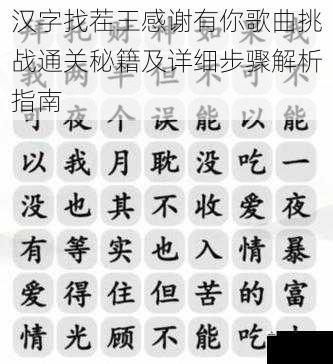 汉字找茬王感谢有你歌曲挑
战通关秘籍及详细步骤解析
指南
可夜个误能以能
以我月耽没吃一
没也其不收爱夜
有等实也入情暴
爱得住但苦的富
情光顾不能吃